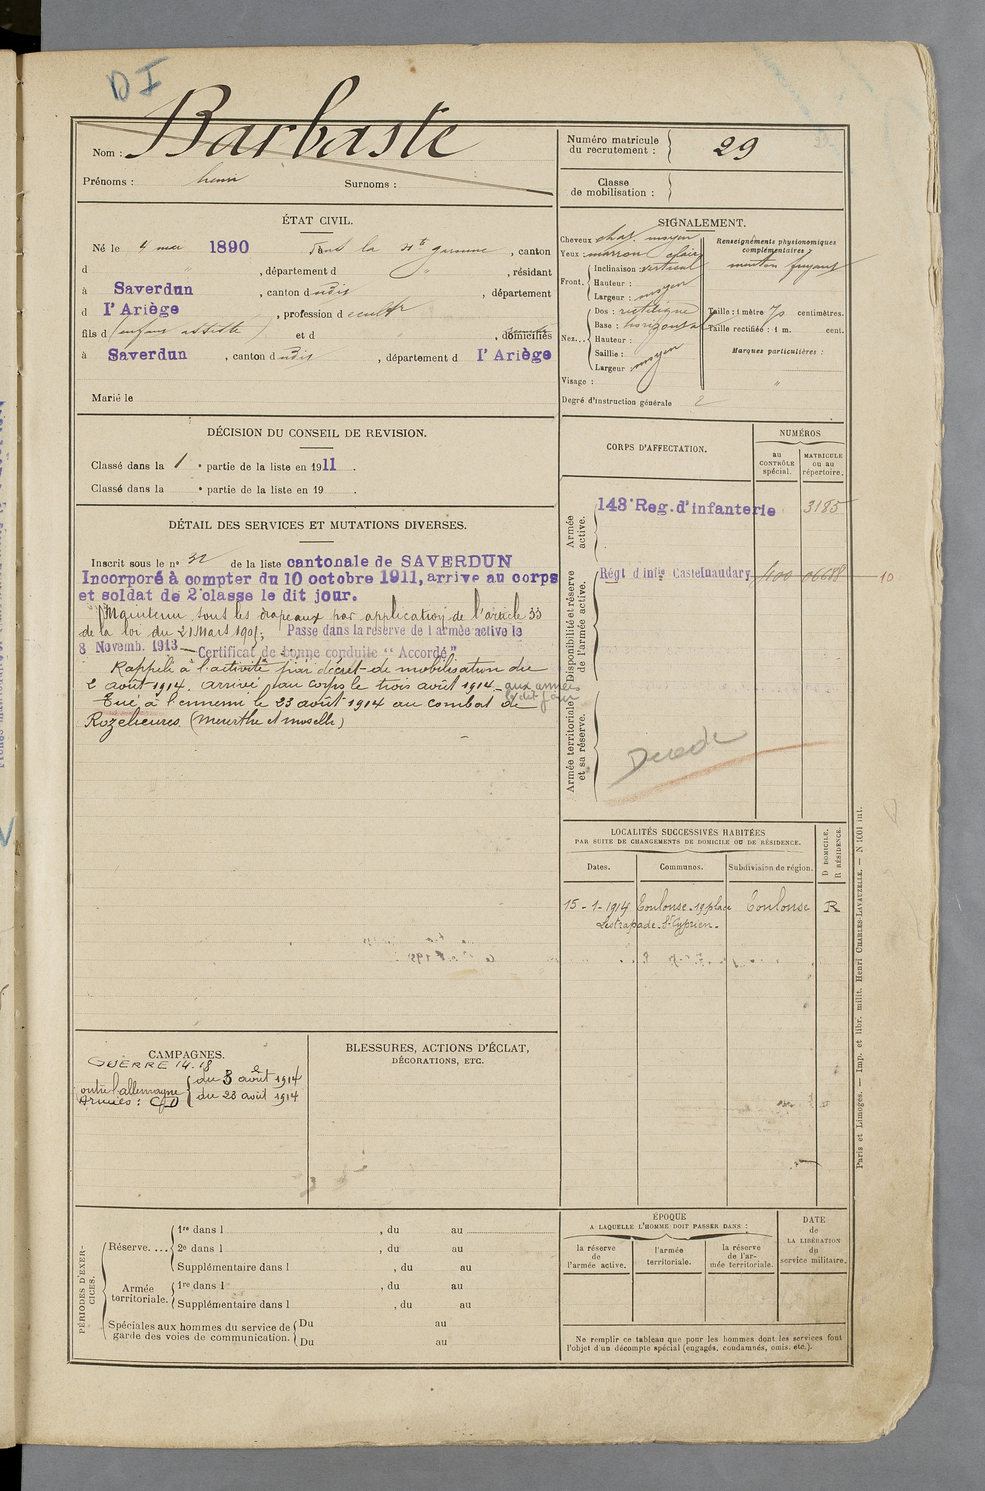 D I
Nom : Barbaste
Prénoms : henri Surnoms :
Numéro matricule du recrutement : 29
Classe de mobilisation :
ÉTAT CIVIL.
Né le 4 mai 1890 dans la Hte garonne, canton
d " , département d " , résidant
à Saverdun , canton dudit , département
d l'Ariège , profession d
fils d (enfant assisté) et d , domiciliés
à Saverdun , canton dudit , département d l'Ariège
Marié le
SIGNALEMENT.
Cheveux chat. moyen
Yeux : marron clair
Front. Inclinaison : vertical
Hauteur :
Largeur : moyen
Nez... Dos : rectiligne
Base : horizontal
Hauteur :
Saillie :
Largeur : moyen
Visage :
Degré d'instruction générale 2
Renseignements physionomiques
complémentaires :
menton fuyant
Taille : 1 mètre 70 centimètres.
Taille rectifiée : 1 m. cent.
Marques particulières :
"
DÉCISION DU CONSEIL DE REVISION.
Classé dans la 1 e partie de la liste en 1911 .
Classé dans la e partie de la liste en 19 .
DÉTAIL DES SERVICES ET MUTATIONS DIVERSES.
Inscrit sous le n° 32 de la liste cantonale de SAVERDUN
Incorporé à compter du 10 octobre 1911, arrive au corps
et soldat de 2e classe le dit jour.
Maintenu sous les drapeaux par application de l'article 33
de la loi du 21 Mars 1905; Passe dans la réserve de l'armée active le
8 Novemb. 1913 - Certificat de bonne conduite "Accordé"
Rappelé à l'activité par décret de mobilisation du
2 août 1914. arrivé au corps le trois août 1914 - aux armées
le dit jour
Tué à l'ennemi le 23 août 1914 au combat de
Rozelieures. (Meurthe et moselle)
CORPS D'AFFECTATION.
NUMÉROS
au CONTRÔLE spécial.
MATRICULE ou au répertoire.
Armée active.
143e Reg. d'infanterie 3185
Disponibilité et réserve de l'armée active.
Régt d'infie Castelnaudary 400 06688 10
Armée territoriale et sa réserve.
Décédé
LOCALITÉS SUCCESSIVES HABITÉES
PAR SUITE DE CHANGEMENTS DE DOMICILE OU DE RÉSIDENCE.
Dates. Communes. Subdivision de région. D DOMICILE. R RÉSIDENCE.
15-1-1914 Toulouse. 19 place Toulouse R
Lestrapade. St Cyprien.
CAMPAGNES.
GUERRE 14.18
Contre l'allemagne du 3 août 1914
Armées : CD du 23 août 1914
BLESSURES, ACTIONS D'ÉCLAT,
DÉCORATIONS, ETC.
PÉRIODES D'EXERCICES.
Réserve.... 1re dans l , du au
2e dans l , du au
Supplémentaire dans l , du au
Armée territoriale. 1re dans l , du au
Supplémentaire dans l , du au
Spéciales aux hommes du service de Du au
garde des voies de communication. Du au
ÉPOQUE
A LAQUELLE L'HOMME DOIT PASSER DANS :
la réserve de l'armée active.
l'armée territoriale.
la réserve de l'armée territoriale.
DATE de LA LIBÉRATION du service militaire.
Ne remplir ce tableau que pour les hommes dont les services font
l'objet d'un décompte spécial (engagés, condamnés, omis, etc.).
Paris et Limoges. — Imp. et libr. milit. Henri CHARLES-LAVAUZELLE. — N 1001 int.